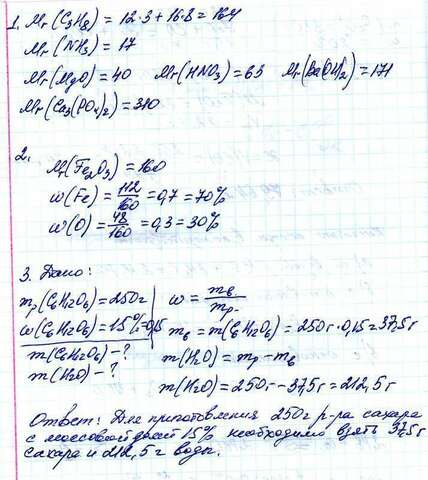 1. Mr(C3H8) = 12·3 + 16·8 = 164
Mr(NH3) = 17
Mr(MgO) = 40 Mr(HNO3) = 63 Mr(Ba(OH)2) = 171
Mr(Ca3(PO4)2) = 310
2.
Mr(Fe2O3) = 160
w(Fe) = 112/160 = 0,7 = 70%
w(O) = 48/160 = 0,3 = 30%
3. Дано:
mр(C6H12O6) = 250г w = mв/mр
w(C6H12O6) = 15% = 0,15 mв = m(C6H12O6) = 250г · 0,15 = 37,5г
m(C6H12O6) - ? m(H2O) = mр - mв
m(H2O) - ?
m(H2O) = 250г - 37,5г = 212,5г
Ответ: Для приготовления 250г р-ра сахара
с массовой долей 15% необходимо взять 37,5г
сахара и 212,5г воды.